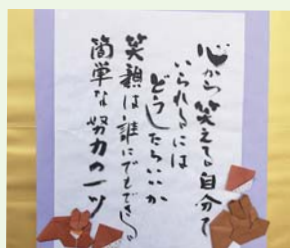 心から笑えてる自分で
いられるには
どうしたらいいか
笑顔は誰にでもできる
簡単な努力の一ツ